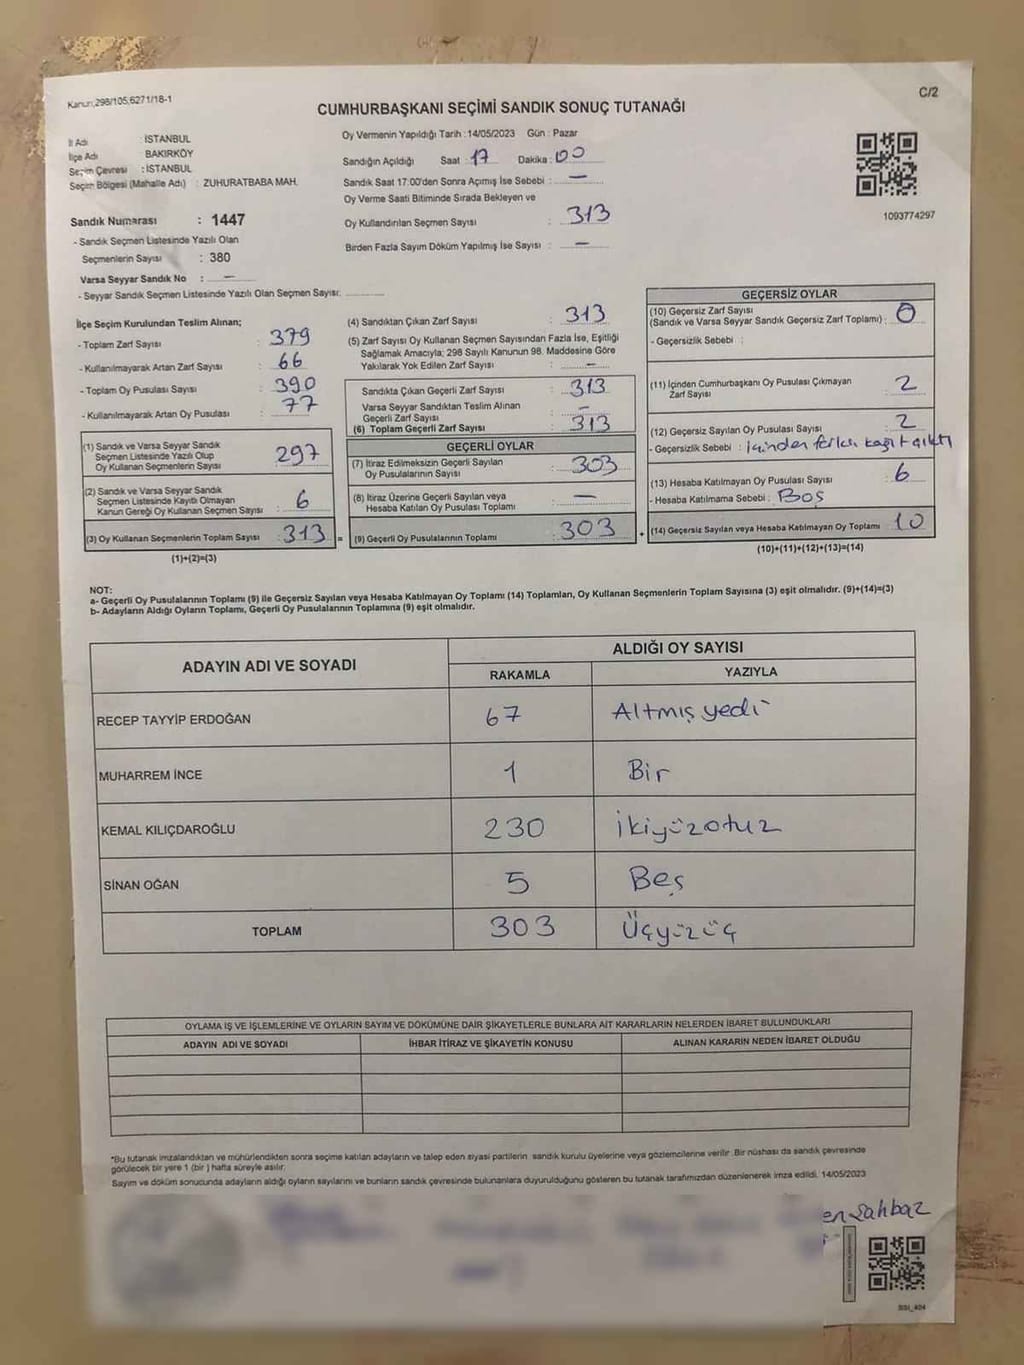 Kanun,298/105,6271/18-1
C/2
CUMHURBAŞKANI SEÇİMİ SANDIK SONUÇ TUTANAĞI
İl Adı : İSTANBUL
İlçe Adı : BAKIRKÖY
Seçim Çevresi : İSTANBUL
Seçim Bölgesi (Mahalle Adı) : ZUHURATBABA MAH.
Sandık Numarası : 1447
- Sandık Seçmen Listesinde Yazılı Olan
Seçmenlerin Sayısı : 380
Varsa Seyyar Sandık No : —
- Seyyar Sandık Seçmen Listesinde Yazılı Olan Seçmen Sayısı:
Oy Vermenin Yapıldığı Tarih : 14/05/2023 Gün : Pazar
Sandığın Açıldığı Saat : 17 Dakika : 00
Sandık Saat 17:00'den Sonra Açımış İse Sebebi : —
Oy Verme Saati Bitiminde Sırada Bekleyen ve
Oy Kullandırılan Seçmen Sayısı : 313
Birden Fazla Sayım Döküm Yapılmış İse Sayısı : —
1093774297
İlçe Seçim Kurulundan Teslim Alınan;
- Toplam Zarf Sayısı : 379
- Kullanılmayarak Artan Zarf Sayısı : 66
- Toplam Oy Pusulası Sayısı : 390
- Kullanılmayarak Artan Oy Pusulası : 77
(1) Sandık ve Varsa Seyyar Sandık
Seçmen Listesinde Yazılı Olup
Oy Kullanan Seçmenlerin Sayısı : 297
(2) Sandık ve Varsa Seyyar Sandık
Seçmen Listesinde Kayıtlı Olmayan
Kanun Gereği Oy Kullanan Seçmen Sayısı : 6
(3) Oy Kullanan Seçmenlerin Toplam Sayısı : 313 =
(1)+(2)=(3)
(4) Sandıktan Çıkan Zarf Sayısı : 313
(5) Zarf Sayısı Oy Kullanan Seçmen Sayısından Fazla İse, Eşitliği
Sağlamak Amacıyla; 298 Sayılı Kanunun 98. Maddesine Göre
Yakılarak Yok Edilen Zarf Sayısı : —
Sandıkta Çıkan Geçerli Zarf Sayısı : 313
Varsa Seyyar Sandıktan Teslim Alınan
Geçerli Zarf Sayısı : —
(6) Toplam Geçerli Zarf Sayısı : 313
GEÇERLİ OYLAR
(7) İtiraz Edilmeksizin Geçerli Sayılan
Oy Pusulalarının Sayısı : 303
(8) İtiraz Üzerine Geçerli Sayılan veya
Hesaba Katılan Oy Pusulası Toplamı : —
(9) Geçerli Oy Pusulalarının Toplamı : 303 +
GEÇERSİZ OYLAR
(10) Geçersiz Zarf Sayısı
(Sandık ve Varsa Seyyar Sandık Geçersiz Zarf Toplamı) : 0
- Geçersizlik Sebebi :
(11) İçinden Cumhurbaşkanı Oy Pusulası Çıkmayan
Zarf Sayısı : 2
(12) Geçersiz Sayılan Oy Pusulası Sayısı : 2
- Geçersizlik Sebebi : İçinden farklı kağıt çıktı
(13) Hesaba Katılmayan Oy Pusulası Sayısı : 6
- Hesaba Katılmama Sebebi : Boş
(14) Geçersiz Sayılan veya Hesaba Katılmayan Oy Toplamı 10
(10)+(11)+(12)+(13)=(14)
NOT:
a- Geçerli Oy Pusulalarının Toplamı (9) ile Geçersiz Sayılan veya Hesaba Katılmayan Oy Toplamı (14) Toplamları, Oy Kullanan Seçmenlerin Toplam Sayısına (3) eşit olmalıdır. (9)+(14)=(3)
b- Adayların Aldığı Oyların Toplamı, Geçerli Oy Pusulalarının Toplamına (9) eşit olmalıdır.
ADAYIN ADI VE SOYADI ALDIĞI OY SAYISI
RAKAMLA YAZIYLA
RECEP TAYYİP ERDOĞAN 67 Altmış yedi
MUHARREM İNCE 1 Bir
KEMAL KILIÇDAROĞLU 230 İkiyüzotuz
SİNAN OĞAN 5 Beş
TOPLAM 303 Üçyüzüç
OYLAMA İŞ VE İŞLEMLERİNE VE OYLARIN SAYIM VE DÖKÜMÜNE DAİR ŞİKAYETLERLE BUNLARA AİT KARARLARIN NELERDEN İBARET BULUNDUKLARI
ADAYIN ADI VE SOYADI İHBAR İTİRAZ VE ŞİKAYETİN KONUSU ALINAN KARARIN NEDEN İBARET OLDUĞU
*Bu tutanak imzalandıktan ve mühürlendikten sonra seçime katılan adayların ve talep eden siyasi partilerin sandık kurulu üyelerine veya gözlemcilerine verilir. Bir nüshası da sandık çevresinde
görülecek bir yere 1 (bir ) hafta süreyle asılır.
Sayım ve döküm sonucunda adayların aldığı oyların sayılarını ve bunların sandık çevresinde bulunanlara duyurulduğunu gösteren bu tutanak tarafımızdan düzenlenerek imza edildi. 14/05/2023
en Şahbaz
SSI_404